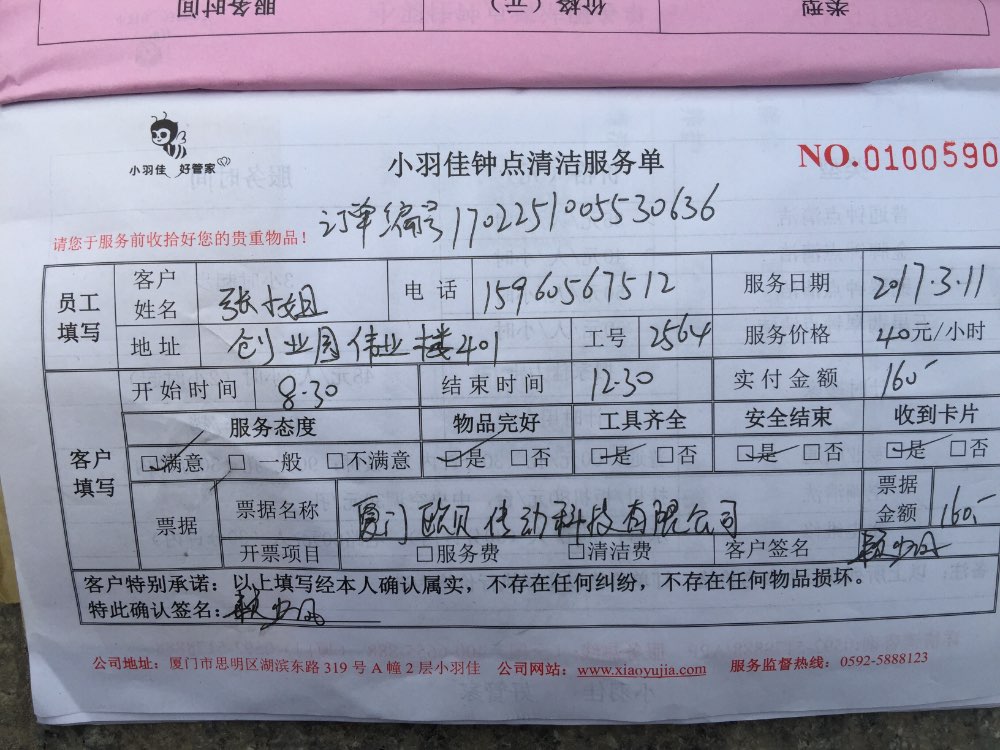 服务时间 价格(元) 类型
小羽佳 好管家
小羽佳钟点清洁服务单
NO.0100590
订单编号1702251005530636
请您于服务前收拾好您的贵重物品!
员工填写 客户姓名 张小姐 电话 15960567512 服务日期 2017.3.11
地址 创业园伟业楼401 工号 2564 服务价格 40元/小时
客户填写 开始时间 8.30 结束时间 12.30 实付金额 160
服务态度 物品完好 工具齐全 安全结束 收到卡片
□满意 □一般 □不满意 □是 □否 □是 □否 □是 □否 □是 □否
票据 票据名称 厦门欧贝传动科技有限公司 票据金额 160
开票项目 □服务费 □清洁费 客户签名
客户特别承诺:以上填写经本人确认属实,不存在任何纠纷,不存在任何物品损坏。
特此确认签名:
公司地址:厦门市思明区湖滨东路 319 号 A 幢 2 层小羽佳 公司网站:www.xiaoyujia.com 服务监督热线:0592-5888123